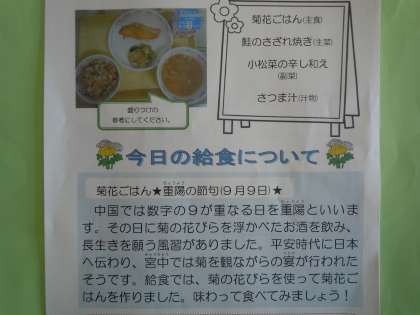 菊花ごはん(主食)
鮭のさざれ焼き(主菜)
小松菜の辛し和え
(副菜)
さつま汁(汁物)
盛りつけの
参考にしてください。
今日の給食について
菊花ごはん★重陽の節句(9月9日)★
中国では数字の9が重なる日を重陽といいま
す。その日に菊の花びらを浮かべたお酒を飲み、
長生きを願う風習がありました。平安時代に日本
へ伝わり、宮中では菊を観ながらの宴が行われた
そうです。給食では、菊の花びらを使って菊花ご
はんを作りました。味わって食べてみましょう！